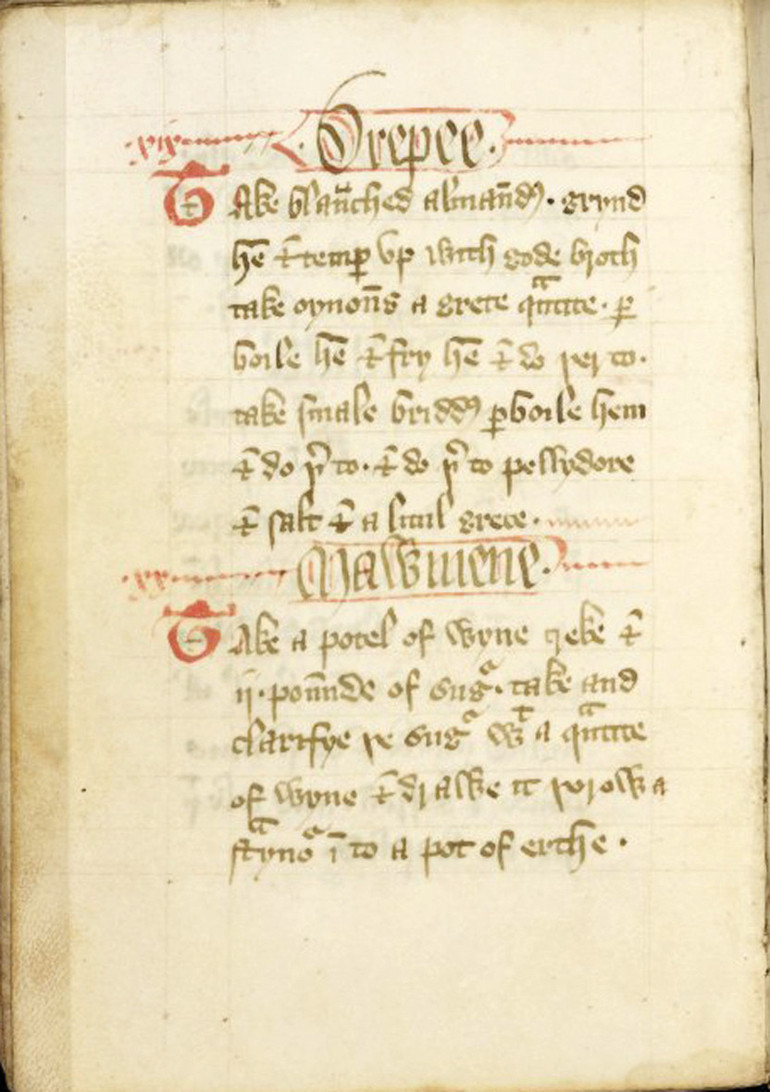 .xix. Drepee.
Take blañched almañdꝭ. grynd
hē ⁊ temꝑ vp with gode broth
take oynoñs a grete qᵃntite. ꝑ
boile hē ⁊ fry hē ⁊ do þer to.
take smale briddꝭ ꝑboile hem
⁊ do þʳto. ⁊ do þʳto pellydore
⁊ salt ⁊ a litul grece.
.xx. Mawmene.
Take a potel of wyne greke ⁊
ij. pouñde of sugᵃ. take and
clarifye þe sugᵃ wᵗ a qᵃntite
of wyne ⁊ drawe it þorow a
stᵃynoʳ ī to a pot of erthe.